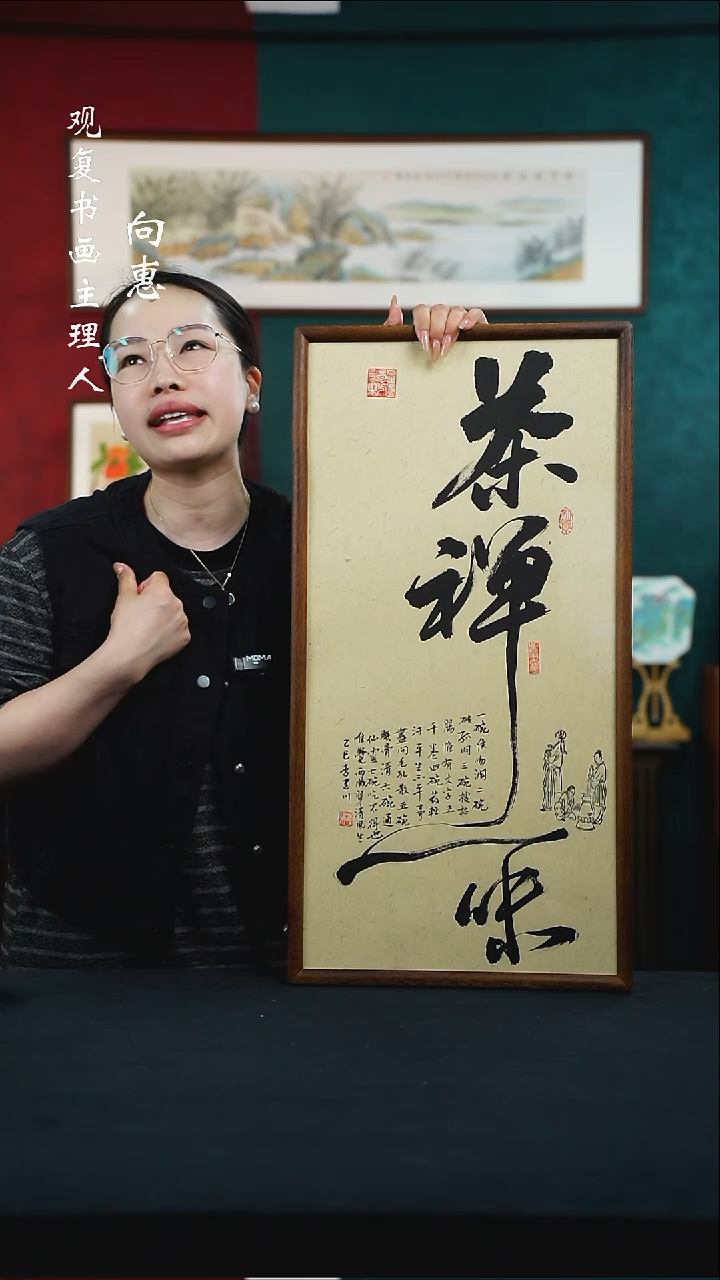 观复书画主理人
向惠
茶禅一味
一碗喉吻润二碗
破孤闷三碗搜枯
肠惟有文字五
千卷四碗发轻
汗平生不平事
盡向毛孔散五碗
肌骨清六碗通
仙灵七碗吃不得也
惟覺两腋習習清風生
乙巳